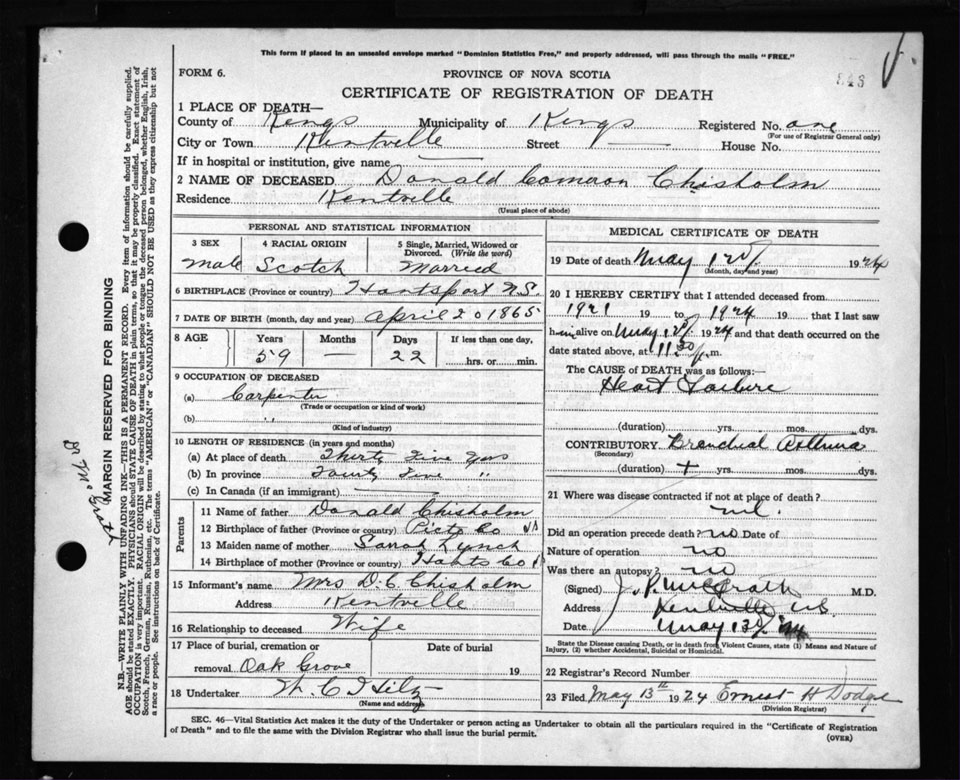 This form if placed in an unsealed envelope marked "Dominion Statistics Free," and properly addressed, will pass through the mails "FREE."
FORM 6.
PROVINCE OF NOVA SCOTIA
CERTIFICATE OF REGISTRATION OF DEATH
1 PLACE OF DEATH—
County of Kings Municipality of Kings Registered No. one
(For use of Registrar General only)
City or Town Kentville Street — House No.
If in hospital or institution, give name —
2 NAME OF DECEASED Donald Cameron Chisholm
Residence Kentville
(Usual place of abode)
PERSONAL AND STATISTICAL INFORMATION
3 SEX 4 RACIAL ORIGIN 5 Single, Married, Widowed or Divorced. (Write the word)
Male Scotch Married
6 BIRTHPLACE (Province or country) Hantsport N.S.
7 DATE OF BIRTH (month, day and year) April 20 1865
8 AGE Years Months Days If less than one day,
59 — 22 hrs. or min.
9 OCCUPATION OF DECEASED
(a) Carpenter
(Trade or occupation or kind of work)
(b) "
(Kind of industry)
10 LENGTH OF RESIDENCE (in years and months)
(a) At place of death Thirty Five Yrs
(b) In province "
(c) In Canada (if an immigrant) —
Parents
11 Name of father Donald Chisholm
12 Birthplace of father (Province or country) Co NS
13 Maiden name of mother Sarah Lynch
14 Birthplace of mother (Province or country) Hants Co
15 Informant's name Mrs D. C. Chisholm
Address Kentville
16 Relationship to deceased Wife
17 Place of burial, cremation or Date of burial
removal Oak Grove 19
18 Undertaker
(Name and address)
MEDICAL CERTIFICATE OF DEATH
19 Date of death May 12 1924
(Month, day and year)
20 I HEREBY CERTIFY that I attended deceased from
1921 19 to 1924 19 that I last saw
him alive on May 12 1924 and that death occurred on the
date stated above, at 11 30 p.m.
The CAUSE of DEATH was as follows:
Heart Failure
(duration) yrs. mos. dys.
CONTRIBUTORY Bronchial Asthma
(Secondary)
(duration) yrs. mos. dys.
21 Where was disease contracted if not at place of death?
Did an operation precede death? no Date of
Nature of operation no
Was there an autopsy? no
(Signed) M.D.
Address Kentville NS
Date May 13
State the Disease causing Death, or in death from Violent Causes, state (1) Means and Nature of Injury, (2) whether Accidental, Suicidal or Homicidal.
22 Registrar's Record Number
23 Filed May 13th 1924 Ernest H Dodge
(Division Registrar)
SEC. 46—Vital Statistics Act makes it the duty of the Undertaker or person acting as Undertaker to obtain all the particulars required in the "Certificate of Registration of Death" and to file the same with the Division Registrar who shall issue the burial permit.
(OVER)
MARGIN RESERVED FOR BINDING
N.B.—WRITE PLAINLY WITH UNFADING INK—THIS IS A PERMANENT RECORD. Every item of information should be carefully supplied.
AGE should be stated EXACTLY. PHYSICIANS should STATE CAUSE OF DEATH in plain terms, so that it may be properly classified. Exact statement of
OCCUPATION is very important. RACIAL ORIGIN will be described by stating to what people or tongue the deceased person belonged, whether English, Irish,
Scotch, French, German, Russian, Ruthenian, etc. The terms "AMERICAN" or "CANADIAN" SHOULD NOT BE USED as they express citizenship but not
a race or people. See instructions on back of Certificate.